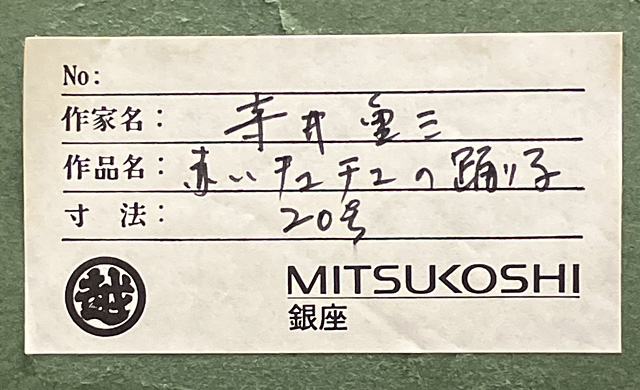 No:
作家名： 寺井重三
作品名： 赤いチュチュの踊り子
寸　法： 20号
越
MITSUKOSHI
銀座